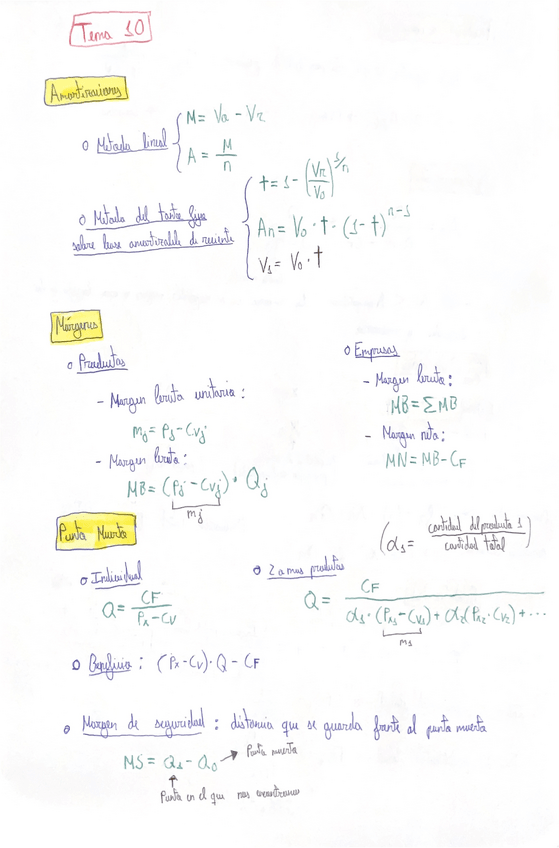 Tema 10
Amortizaciones
o Metodo lineal { M = Va - Vr
A = M/n
o Metodo del tanto fijo sobre base amortizable decreciente { t = 1 - (Vr/V0)^1/n
An = V0 · t · (1 - t)^n-1
V1 = V0 · t
Márgenes
o Productos
- Margen bruto unitario:
mj = Pj - Cvj
- Margen bruto:
MB = (Pj - Cvj) · Qj
mj
o Empresas
- Margen bruto:
MB = ΣMB
- Margen neto:
MN = MB - CF
Punto Muerto
(α1 = cantidad del producto 1 / cantidad total)
o Individual
Q = CF / Px - Cv
o 2 o mas productos
Q = CF / α1 · (Px1 - Cv1) + α2 (Px2 - Cv2) + ...
m1
o Beneficio: (Px - Cv) · Q - CF
o Margen de seguridad: distancia que se guarda frente al punto muerto
MS = Q1 - Q0 → Punto muerto
↑
Punto en el que nos encontramos